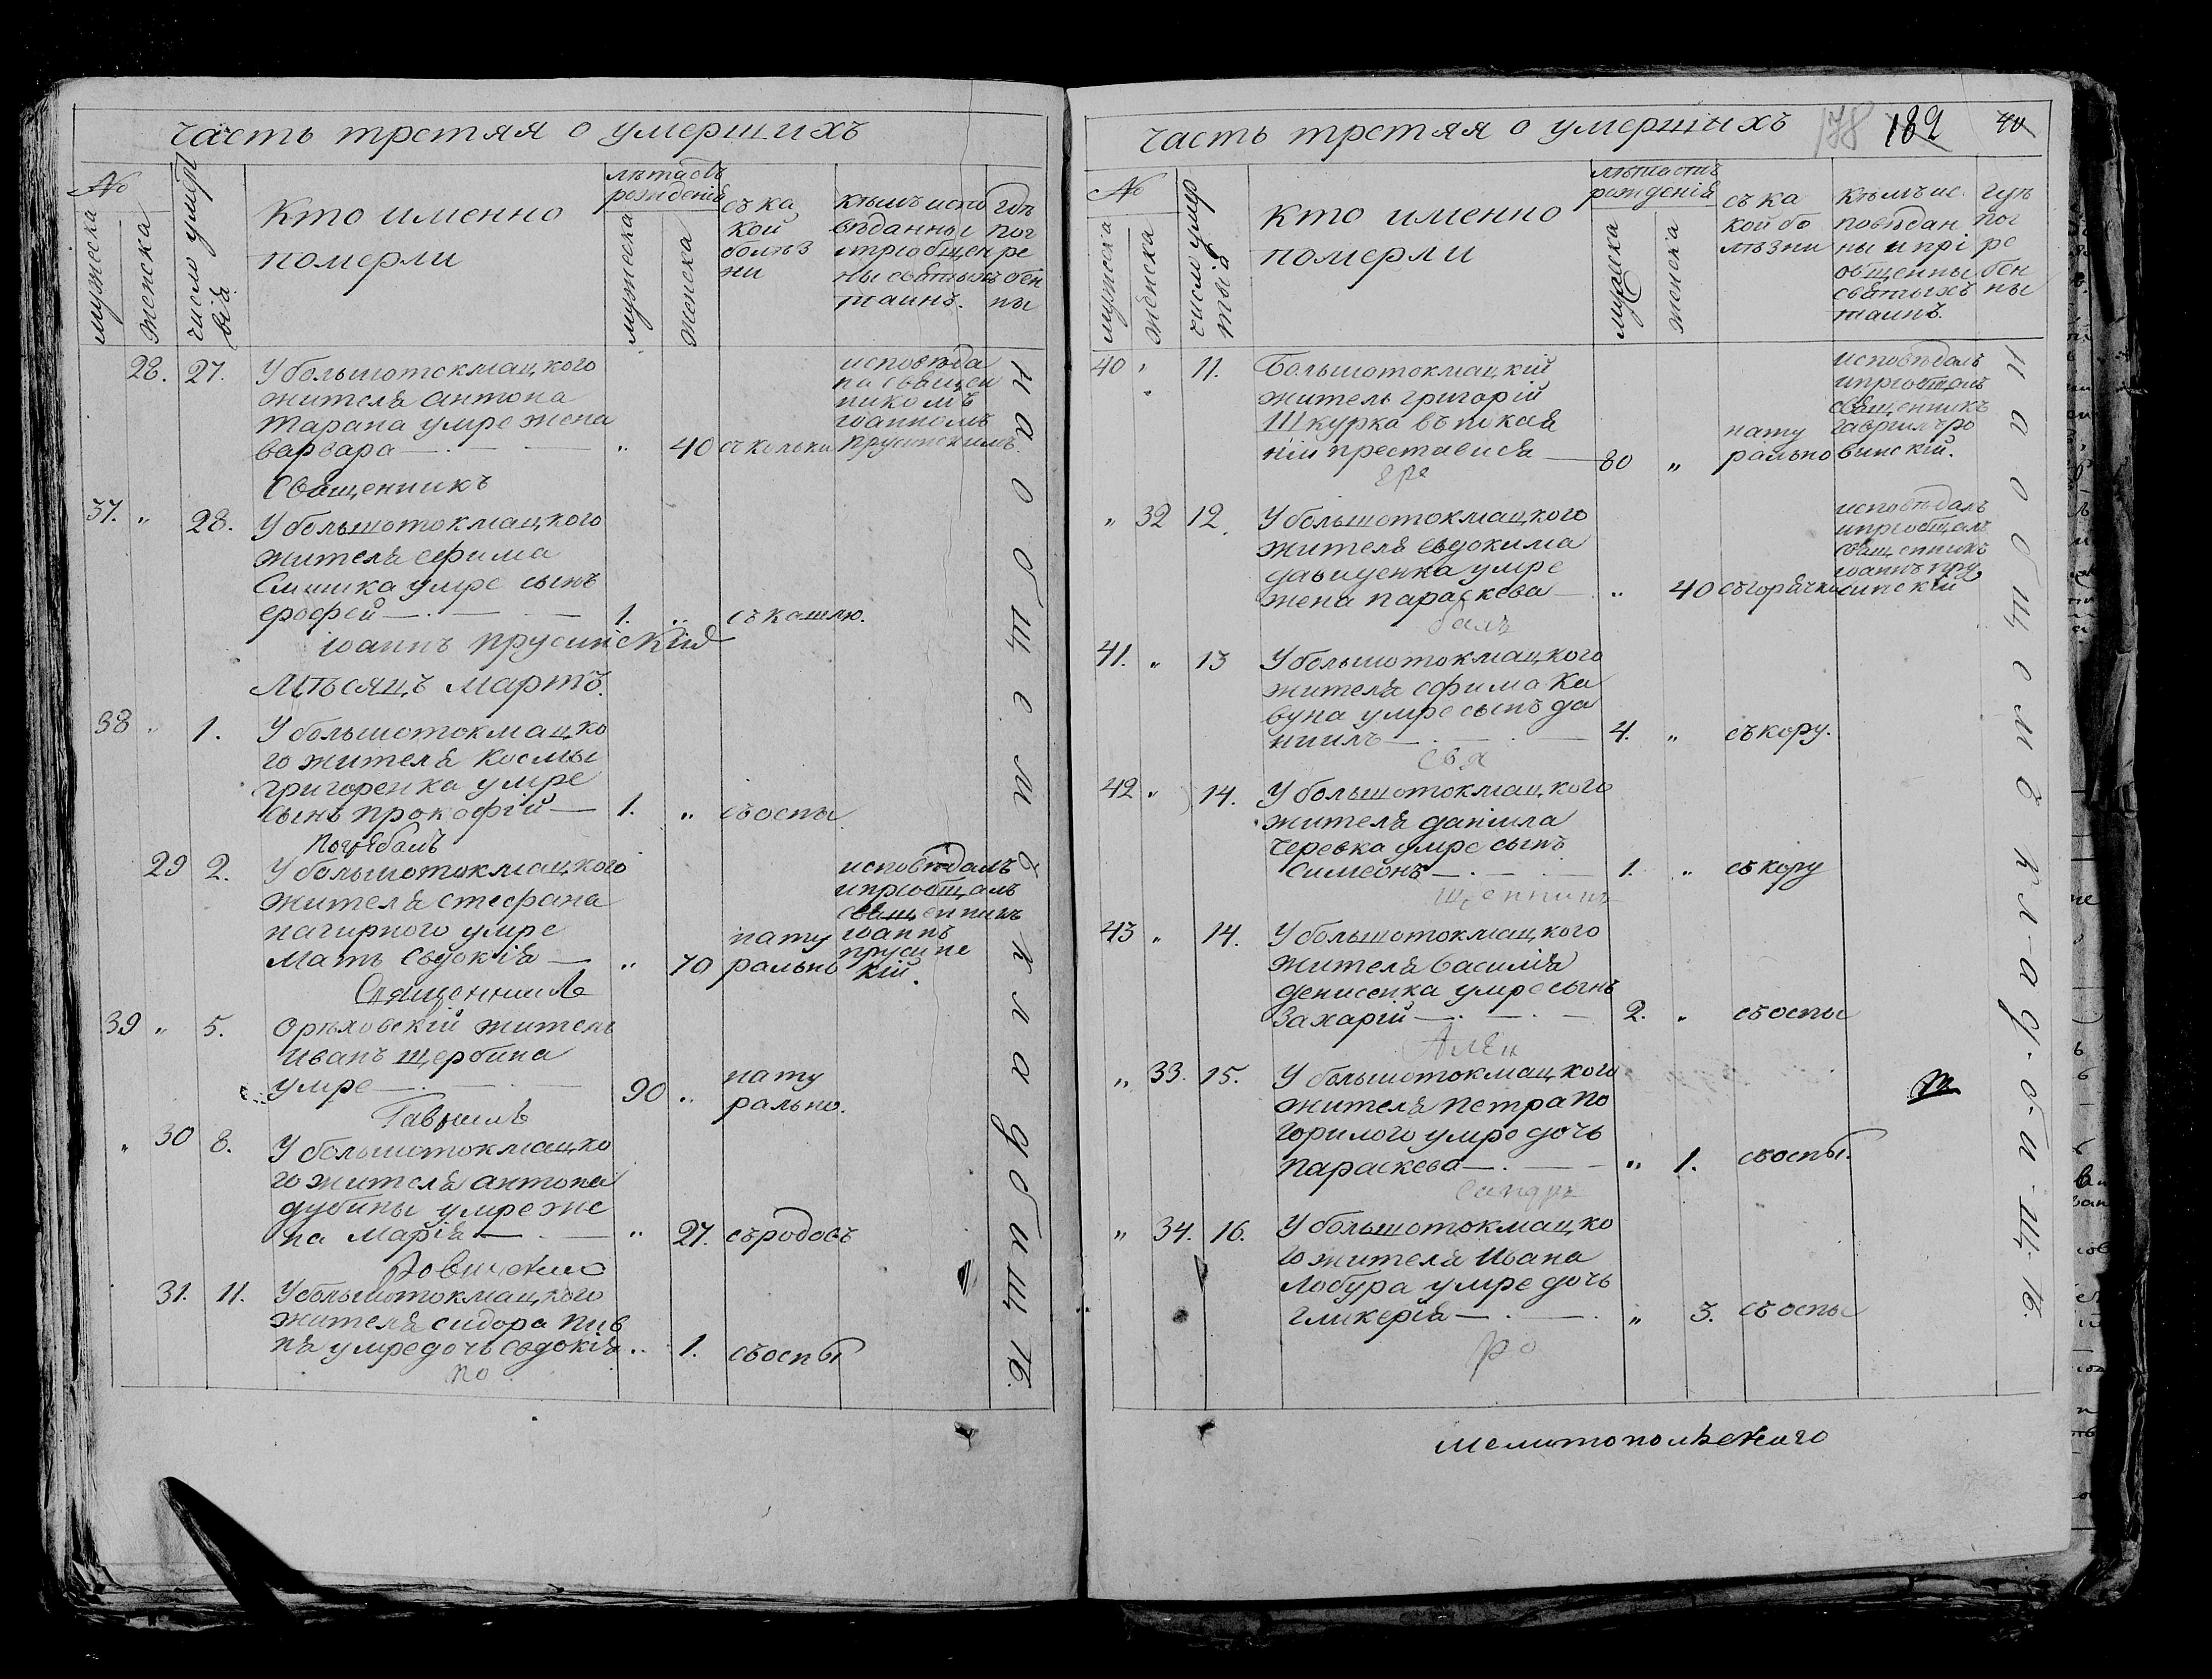 часть третяя о умершихъ
№
мужеска
женска
число умертвія
кто именно
померли
лѣта отъ
рожденія
мужеска
женска
съ ка
кой
болѣз
ни
кѣмъ испо
вѣданны
ипріобщен
ны святыхъ
таинъ.
гдѣ
пог
ре
бен
ны
28. 27. У большотокмацкого
жителя антона
тарана умре жена
варвара — " 40 съ кольки
исповѣда
на священ
никомъ
іоанномъ
прусинскимъ.
Священникъ
37. " 28. У большотокмацкого
жителя ефима
Симика умре сынъ
ерофей — 1. " съ кашлю.
іоаннъ прусинскій
Мѣсяцъ мартъ.
38 " 1. У большотокмацко
го жителя космы
григоренка умре
сынъ прокофій — 1. " съ оспы
Погребалъ
29 2. У большотокмацкого
жителя стефана
нагирного умре
мать Евдокія — " 70 нату
рально
исповѣдалъ
ипріобщалъ
священникъ
іоаннъ
прусинс
кій.
Священникъ
39 " 5. Орѣховскій житель
Иванъ щербина
умре — 90 " нату
рально.
Гавріилъ
" 30 8. У большотокмацко
го жителя антона
дубины умре же
на Марія — " 27. съ родовъ
Ровинскій
31. 11. У большотокмацкого
жителя сидора пив
ня умре дочь евдокія " 1. съ оспы
по
на обшемъ кладбищѣ.
часть третяя о умершихъ
178 182 40
№
мужеска
женска
число умер
твій
кто именно
померли
лѣта отъ
рожденія
мужеска
женска
съ ка
кой бо
лѣзни
кѣмъ ис
повѣдан
ны и прі
общенны
святыхъ
таинъ.
гдѣ
пог
ре
бен
ны
40 " 11. Большотокмацкій
житель григорій
Шкурка въ покая
ніи преставися — 80 " нату
рально
исповѣдалъ
ипріобщалъ
священникъ
гавріилъ ро
винскій.
гре
" 32 12. У большотокмацкого
жителя евдокима
давиденка умре
жена параскева — " 40 съ горячки
исповѣдалъ
ипріобщалъ
священникъ
іоаннъ пру
синскій
балъ
41. " 13 У большотокмацкого
жителя ефима Ка
вуна умре сынъ да
ниилъ — 4. " съ кору.
Свя
42 " 14. У большотокмацкого
жителя даніила
Черевка умре сынъ
Симеонъ — 1. " съ кору
щенникъ
43 " 14. У большотокмацкого
жителя василія
денисенка умре сынъ
Захарій — 2. " съ оспы
Алек
" 33. 15. У большотокмацкого
жителя петра по
горилого умре дочь
параскева — " 1. съ оспы.
сандръ
" 34. 16. У большотокмацко
го жителя Ивана
Лобура умре дочь
гликерія — " 3. съ оспы
ро
на общемъ кладбищѣ.
мелитопольскаго